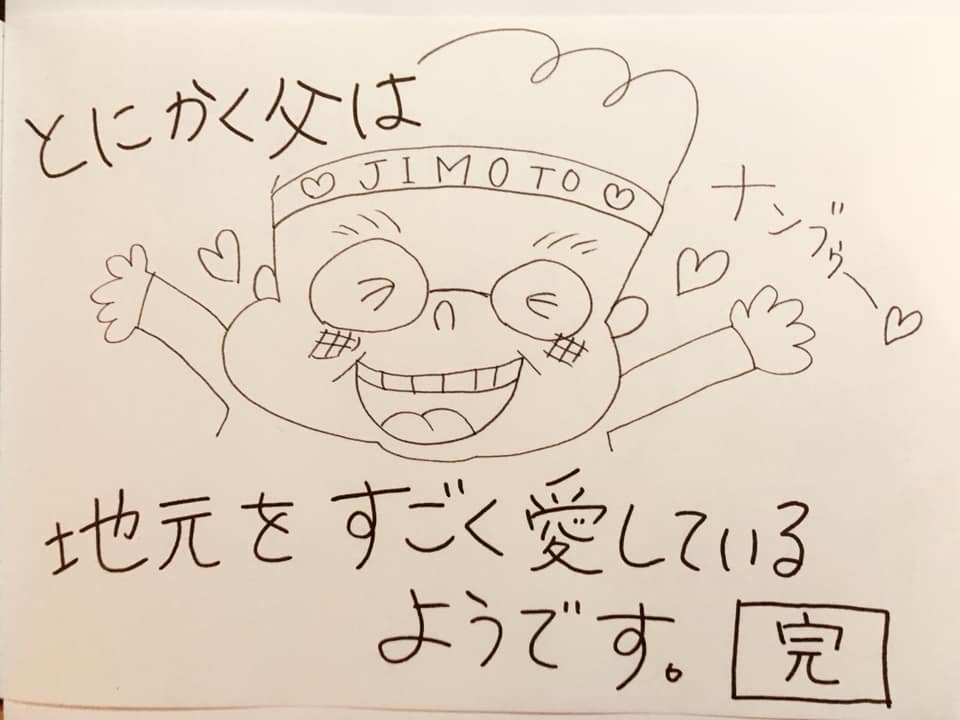 とにかく父は
♡JIMOTO♡
ナンブゥ〜♡
地元をすごく愛している
ようです。
完